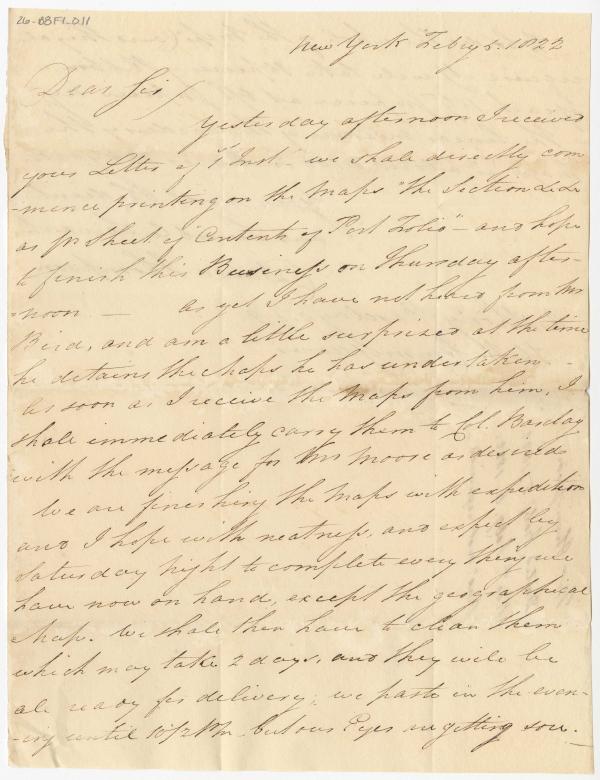 26-BBF1-D11
New York Feby 5. 1822
Dear Sir /
Yesterday afternoon I received
your Letter of 1st Inst. we shall directly com
-mence printing on the Maps "the Section &c &c
as pr Sheet of "Contents of Port Folio" - and hope
to finish this Business on Thursday after-
-noon. — as yet I have not heard from Mr
Bird, and am a little surprized at the time
he detains the Maps he has undertaken -
as soon as I receive the Maps from him, I
shall immediately carry them to Col. Barclay
with the message for Mr Moore as desired
We are finishing the Maps with expedition
and I hope with neatness, and expect by
Saturday night to complete every thing we
have now on hand, except the geographical
Map. We shall then have to clean them
which may take 2 days, and they will be
all ready for delivery; we paste in the even-
-ing until 10 1/2 PM. but our Eyes are getting sore. -